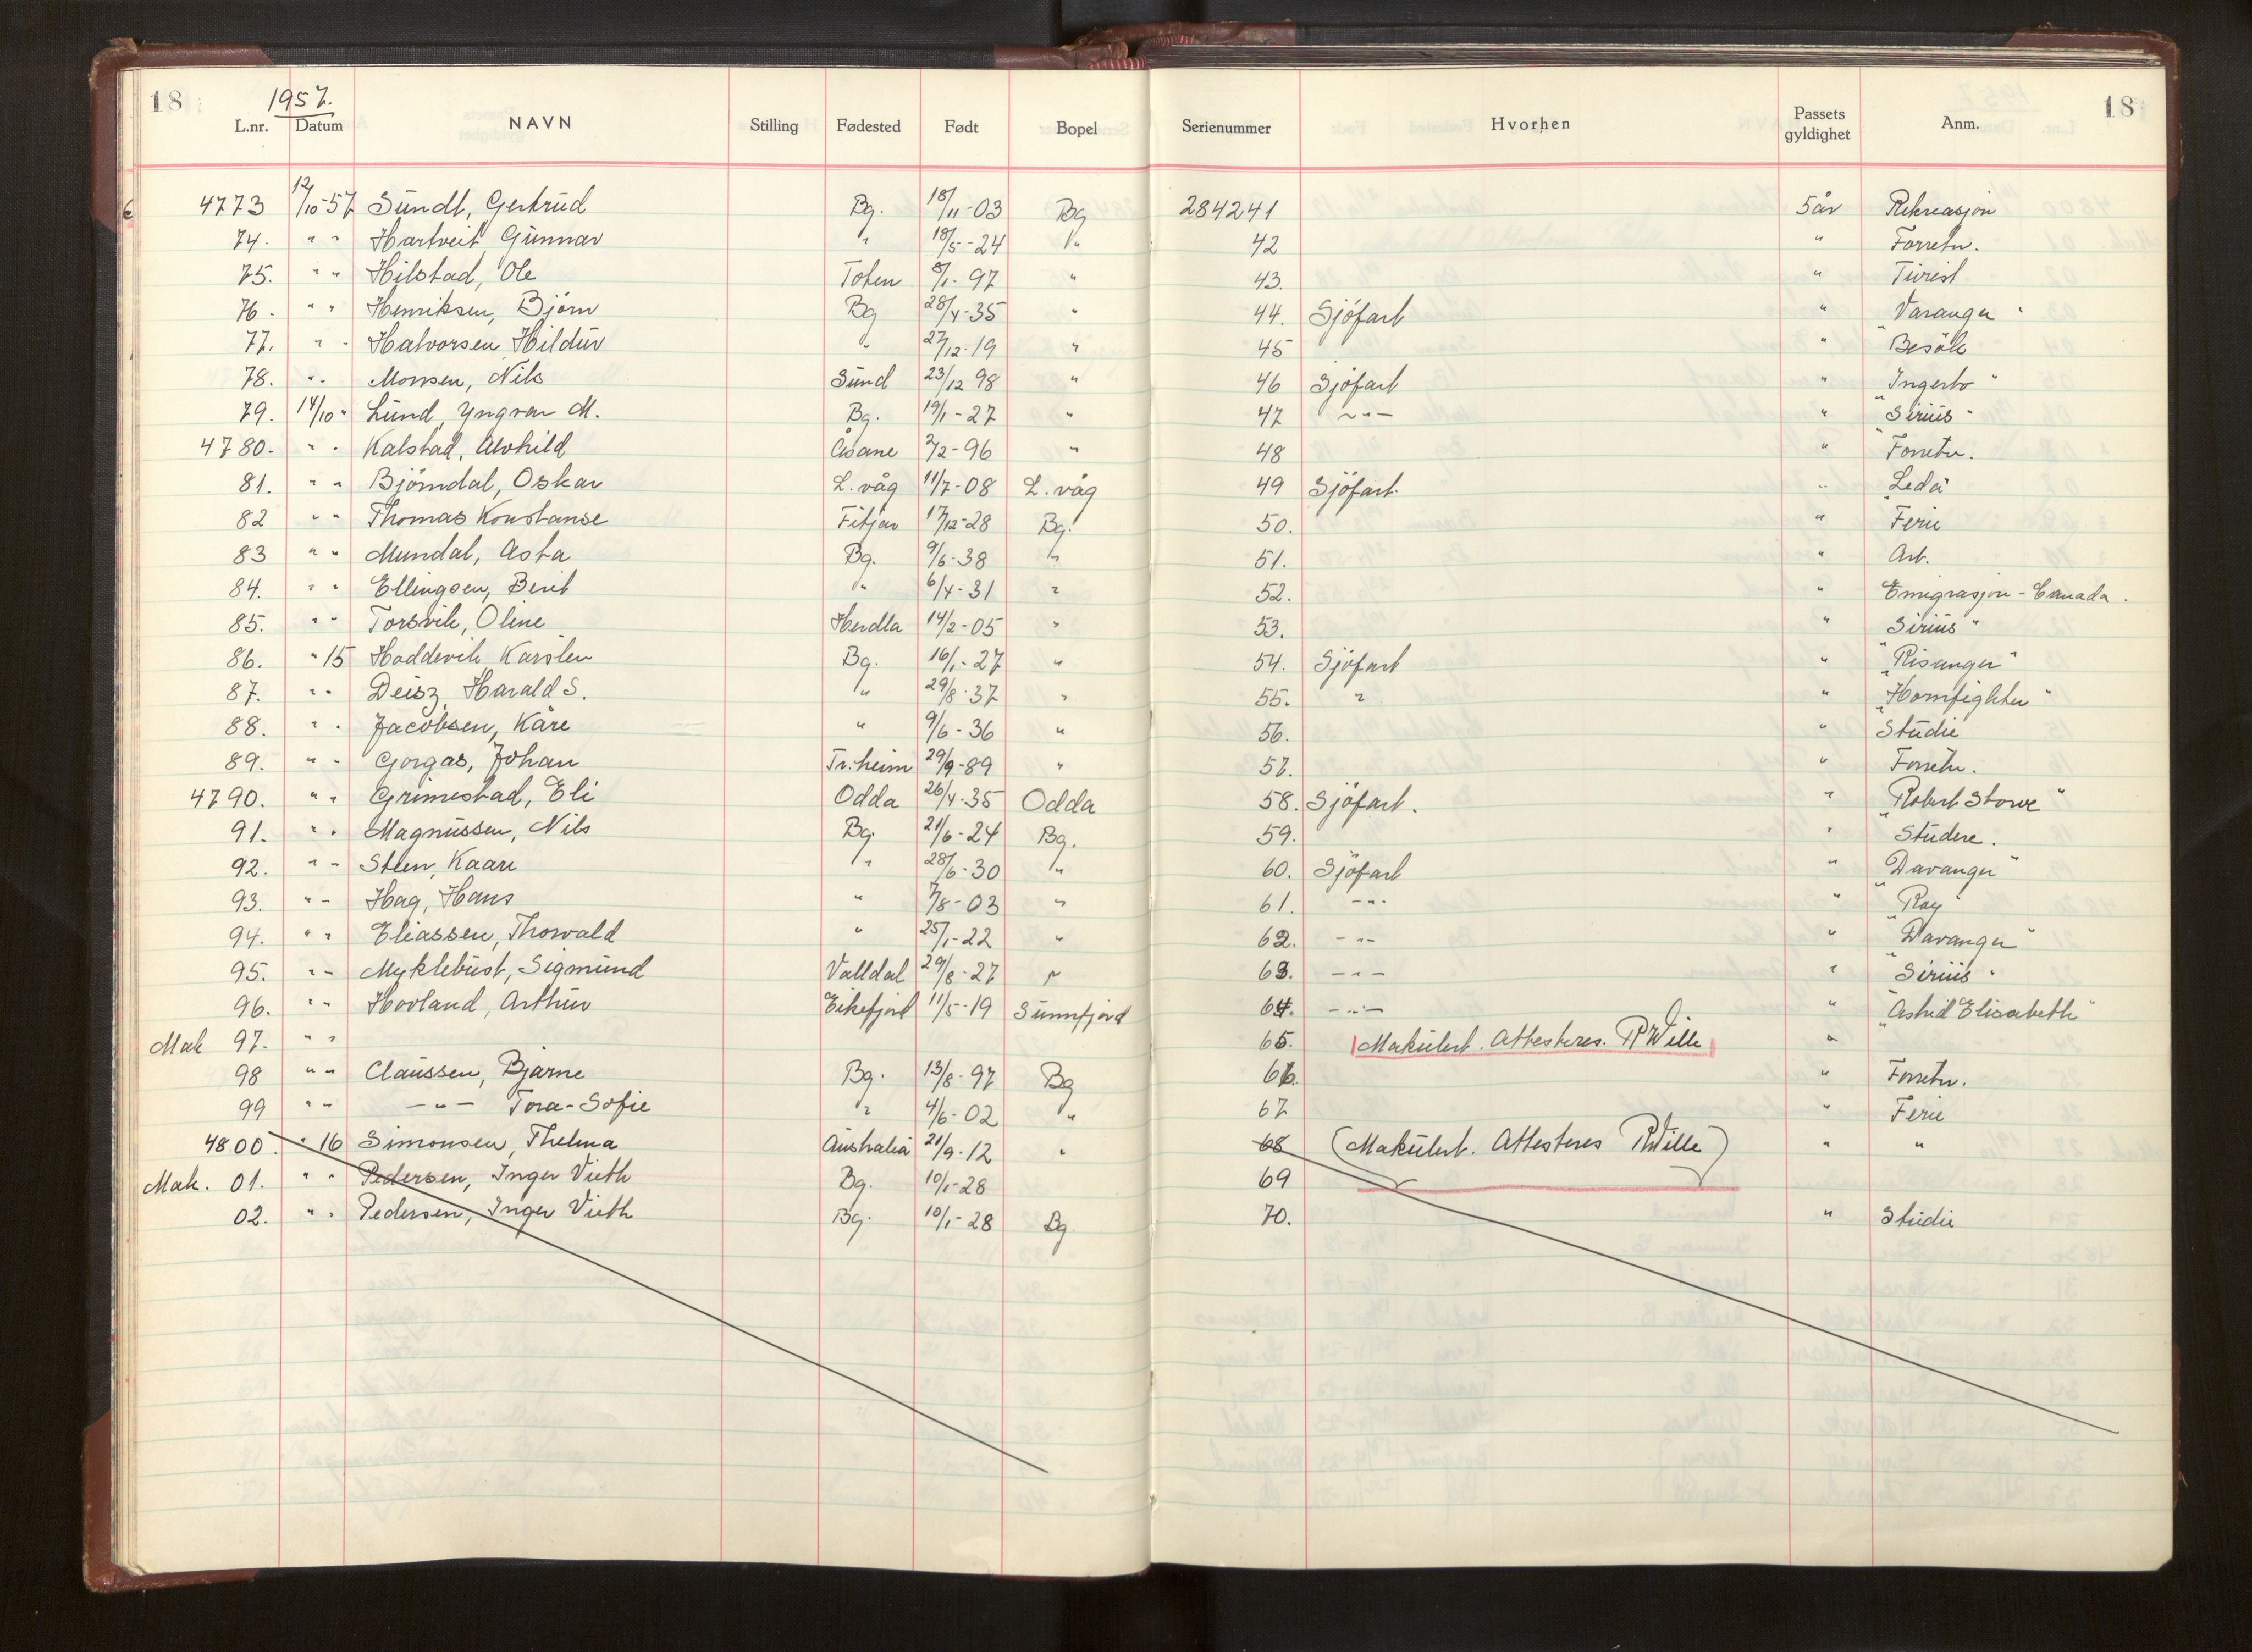 18 1957. 18
L.nr. Datum NAVN Stilling Fødested Født Bopel Serienummer Hvorhen Passets gyldighet Anm.
4773 12/10-57 Sundt, Gertrud Bg. 18/11-03 Bg 284241 5 år Rekreasjon
74. " " Hartveit Gunnar " 18/5-24 " 42 " Forretn.
75. " " Hilstad, Ole Toten 8/1-97 " 43. " Turist
76. " " Henriksen, Bjørn Bg 28/4-35 " 44. Sjöfart " "Varanger"
77. " " Halvorsen Hildur " 27/12-19 " 45 " Besök
78. " " Monsen, Nils Sund 23/12 98 " 46 Sjöfart " "Ingerto"
79. 14/10 " Lund, Yngvar M. Bg. 19/1-27 " 47 -"- " "Sirius"
4780. " " Kalstad, Alvhild Åsane 2/2-96 " 48 " Forretn.
81. " " Björndal, Oskar L.våg 11/7-08 L.våg 49 Sjöfart. " "Leda"
82 " " Thomas Konstanse Fitjar 17/12-28 Bg. 50. " Ferie
83 " " Mundal, Asta Bg. 9/6-38 " 51. " Arb.
84. " " Ellingsen, Berit " 6/4-31 " 52. " Emigrasjon - Canada.
85. " " Torsvik, Oline Herdla 14/2-05 " 53. " "Sirius"
86. " 15 Hoddevik, Karsten Bg. 16/1-27 " 54. Sjöfart " "Risanger"
87. " " Deisz, Harald S. " 29/8-37 " 55. " " "Homfighter"
88. " " Jacobsen, Kåre " 9/6-36 " 56. " Studie
89. " " Gorgas, Johan Tr.heim 29/9-89 " 57. " Forretn.
4790. " " Grimestad, Eli Odda 26/4-35 Odda 58. Sjöfart. " "Robert Stove"
91. " " Magnussen, Nils Bg. 21/6-24 Bg. 59. " Studere.
92. " " Steen, Kaare " 28/6-30 " 60. Sjöfart " "Davanger"
93. " " Hag, Hans " 7/8-03 " 61. -"- " "Ray"
94. " " Eliassen, Thorvald " 25/1-22 " 62. -"- " "Davanger"
95. " " Myklebust, Sigmund Valldal 29/8-27 " 63. -"- " "Sirius"
96. " " Hovland, Arthur Eikefjord 11/5-19 Sunnfjord 64. -"- " "Astrid Elisabeth"
Mak 97. " " 65. Makulert. Attesteres. RWille "
98 " " Claussen, Bjarne Bg. 13/8-97 Bg 66. " Forretn.
99 " " -"- Tora-Sofie " 4/6-02 " 67 " Ferie
4800. " 16 Simonsen, Thelma Australia 21/9-12 " 68 (Makulert. Attesteres RWille) " "
Mak. 01. " " Pedersen, Inger Vieth Bg. 10/1-28 69
02. " " Pedersen, Inger Vieth Bg. 10/1-28 Bg 70. " Studie